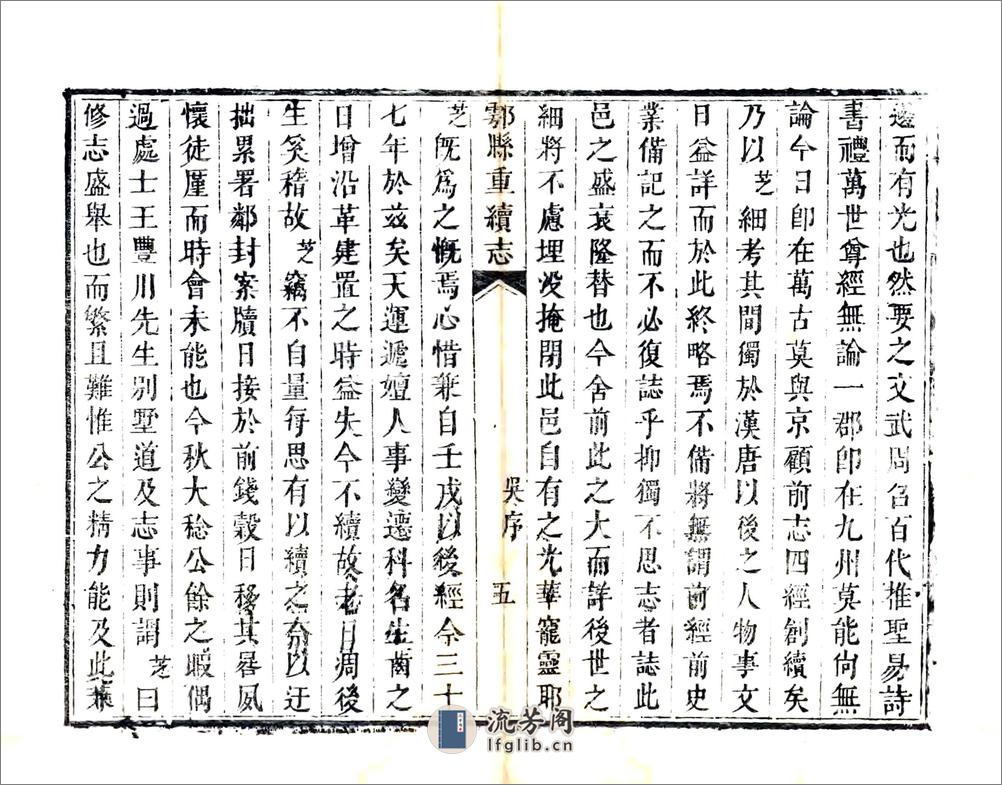 邊而有光也然要之文武周召百代推聖易詩
書禮萬世尊經無論一郡卽在九州莫能尙無
論今日卽在萬古莫與京顧前志四經創續矣
乃以芝細考其間獨於漢唐以後之人物事文
日益詳而於此終略焉不備將無謂前經前史
業備記之而不必復誌乎抑獨不思志者誌此
邑之盛衰隆替也今舍前此之大而詳後世之
細將不慮埋没掩閉此邑自有之光華寵靈耶
鄠縣重續志 吳序 五
芝旣爲之慨焉心惜兼自壬戌以後經今三十
七年於兹矣天運遞嬗人事變遷科名生齒之
日增沿革建置之時益失今不續故老日凋後
生奚稽故芝竊不自量每思有以續之奈以迂
拙累署鄰封案牘日接於前錢榖日移其晷夙
懷徒厪而時會未能也今秋大稔公餘之暇偶
過處士王豐川先生别墅道及志事則謂芝曰
修志盛舉也而繁且難惟公之精力能及此兼
流芳阁
lfglib.cn